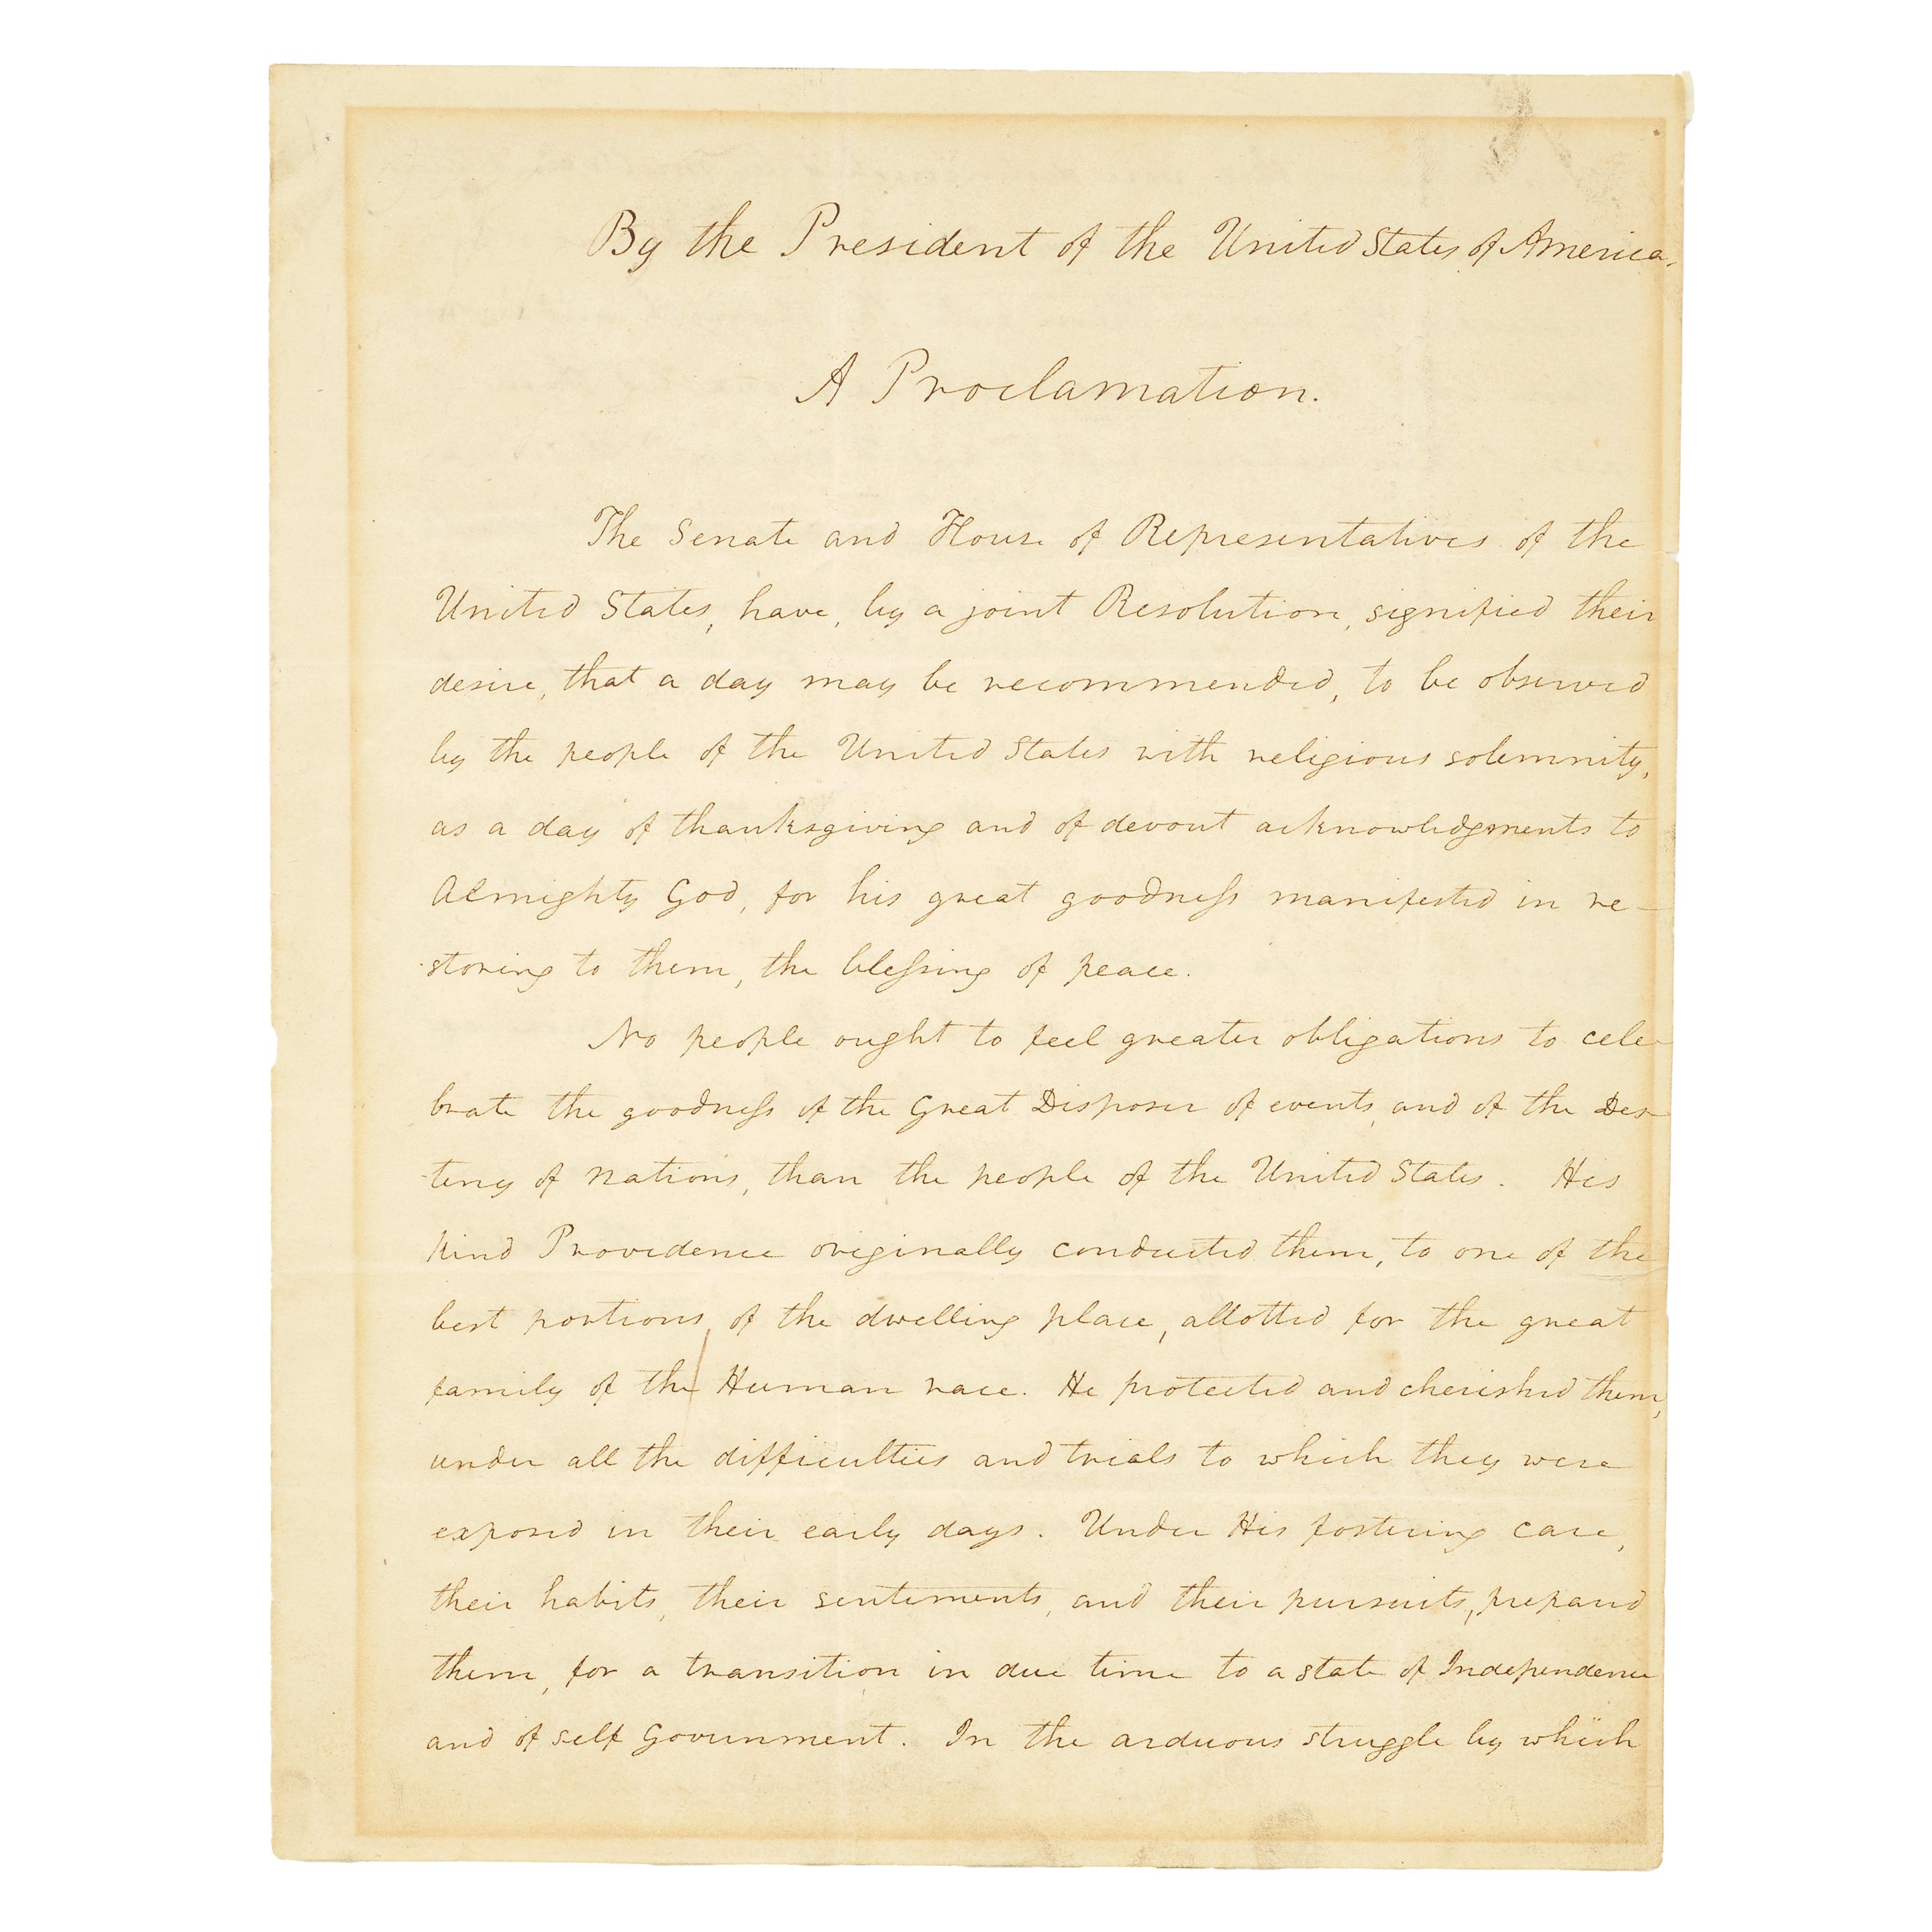 By the President of the United States of America,
A Proclamation.
The Senate and House of Representatives of the
United States, have, by a joint Resolution, signified their
desire, that a day may be recommended, to be observed
by the people of the United States with religious solemnity,
as a day of thanksgiving and of devout acknowledgments to
Almighty God, for his great goodness manifested in re-
storing to them, the blessing of peace.
No people ought to feel greater obligations to cele-
brate the goodness of the Great Disposer of events, and of the Des-
tiny of Nations, than the people of the United States. His
kind Providence originally conducted them, to one of the
best portions, of the dwelling place, allotted for the great
family of the Human race. He protected and cherished them,
under all the difficulties and trials to which they were
exposed in their early days. Under His fostering care,
their habits, their sentiments, and their pursuits, prepared
them, for a transition in due time to a state of Independence
and of self Government. In the arduous struggle by which